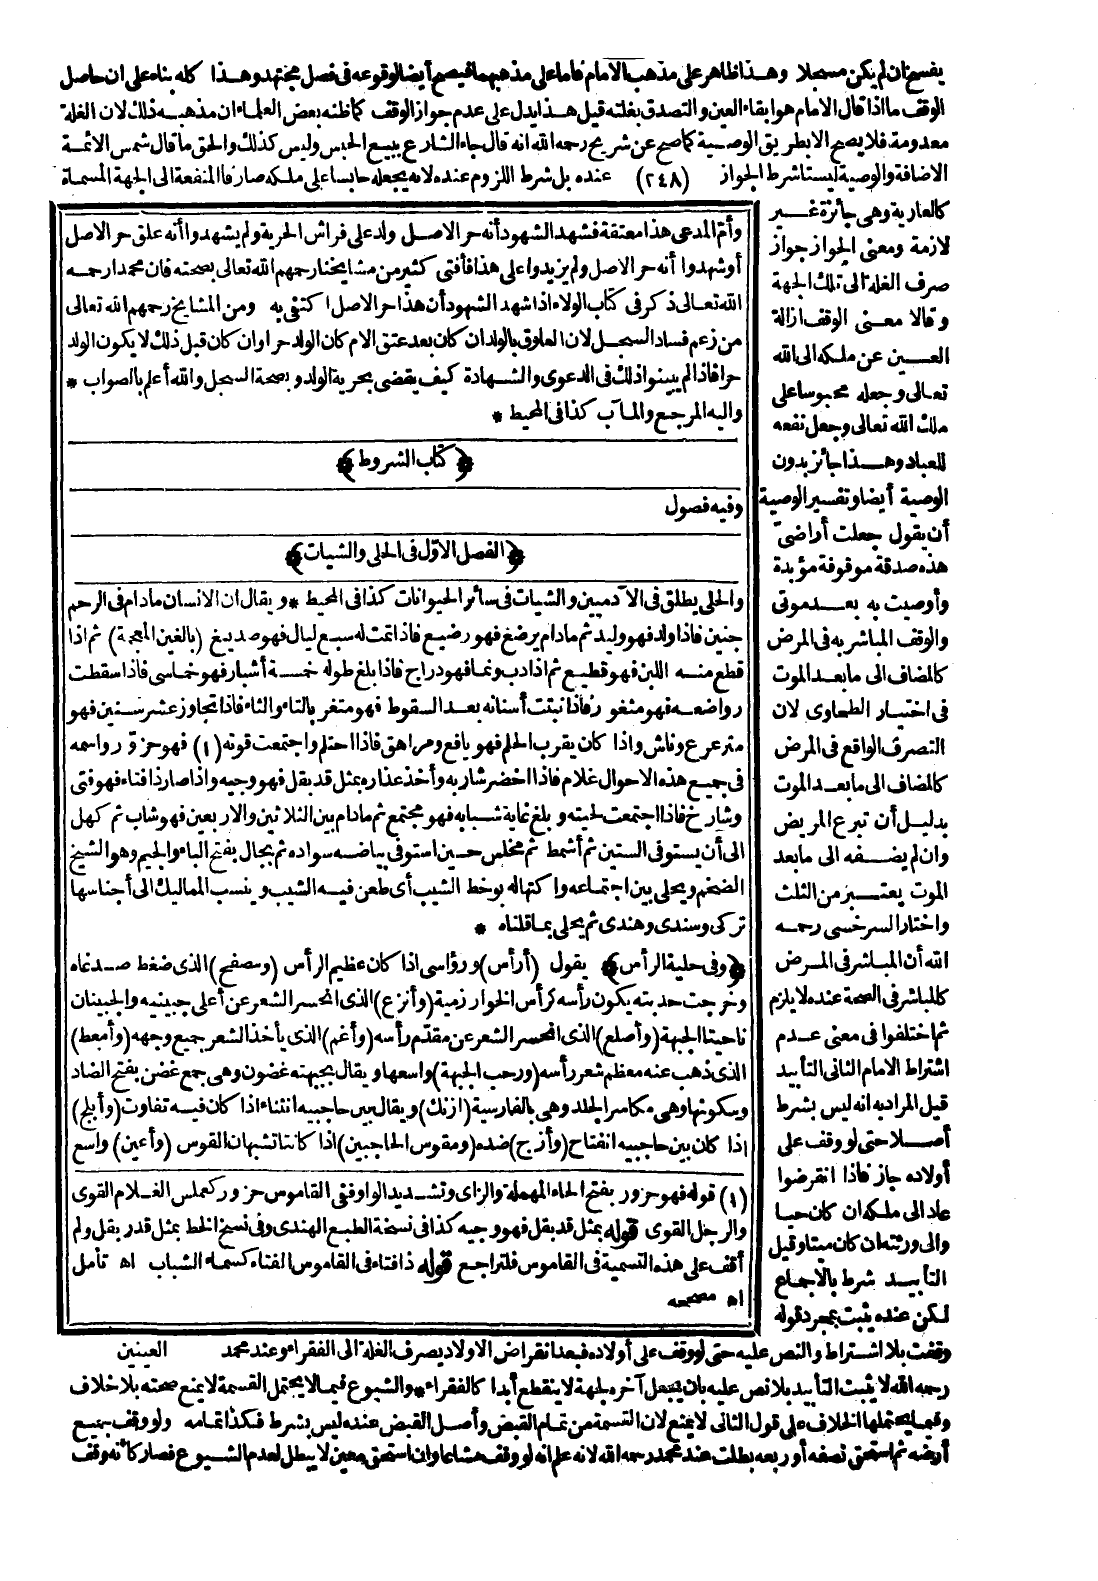 يفسخ ان لم يكن مسجلا وهذا ظاهر على مذهب الامام فاما على مذهبهما فيصح أيضا لوقوعه فى فصل مجتهد وهذا كله بناء على ان حاصل
الوقف ما اذا قال الامام هو ابقاء العين والتصدق بغلته قيل هذا يدل على عدم جواز الوقف كما ظنه بعض العلماء ان مذهبه ذلك لان الغلة
معدومة فلا يصح الا بطريق الوصية كما صح عن شريح رحمه الله انه قال جاء الشارع ببيع الحبس وليس كذلك والحق ما قال شمس الائمة
الاضافة والوصية ليستا شرط الجواز (٢٤٨) عنده بل شرط اللزوم عنده لانه يجعله حابسا على ملكه صارفا المنفعة الى الجهة المسماة
كالعارية وهى جائزة غير
لازمة ومعنى الجواز جواز
صرف الغلة الى تلك الجهة
وقالا معنى الوقف ازالة
العين عن ملكه الى الله
تعالى وجعله محبوسا على
ملك الله تعالى وجعل نفعه
للعباد وهذا جائز بدون
الوصية أيضا وتفسير الوصية
أن يقول جعلت أراضىّ
هذه صدقة موقوفة مؤبدة
وأوصيت به بعد موتى
والوقف المباشر به فى المرض
كالمضاف الى ما بعد الموت
فى اختيار الطحاوى لان
التصرف الواقع فى المرض
كالمضاف الى ما بعد الموت
بدليل أن تبرع المريض
وان لم يضفه الى ما بعد
الموت يعتبر من الثلث
واختار السرخسى رحمه
الله أن المباشر فى المرض
كالمباشر فى الصحة عنده لا يلزم
ثم اختلفوا فى معنى عدم
اشتراط الامام الثانى التأبيد
قيل المراد به انه ليس بشرط
أصلا حتى لو وقف على
أولاده جاز فاذا انقرضوا
عاد الى ملكه ان كان حيا
والى ورثته ان كان ميتا وقيل
التأبيد شرط بالاجماع
لكن عنده يثبت بمجرد قوله
وأم المدعى هذا معتقة فشهد الشهود أنه حر الاصل ولد على فراش الحرية ولم يشهدوا أنه علق حر الاصل
أو شهدوا أنه حر الاصل ولم يزيدوا على هذا فأفتى كثير من مشايخنا رحمهم الله تعالى بصحته فان محمدا رحمه
الله تعالى ذكر فى كتاب الولاء اذا شهد الشهود أن هذا حر الاصل اكتفى به ومن المشايخ رحمهم الله تعالى
من زعم فساد السجل لان العلوق بالولد ان كان بعد عتق الام كان الولد حرا وان كان قبل ذلك لا يكون الولد
حرا فاذا لم يبينوا ذلك فى الدعوى والشهادة كيف يقضى بحرية الولد وبصحة السجل والله أعلم بالصواب *
واليه المرجع والمآب كذا فى المحيط *
﴿ كتاب الشروط ﴾
وفيه فصول
﴿ الفصل الاول فى الحلى والشيات ﴾
والحلى يطلق فى الآدميين والشيات فى سائر الحيوانات كذا فى المحيط * ويقال ان الانسان مادام فى الرحم
جنين فاذا ولد فهو وليد ثم مادام يرضع فهو رضيع فاذا تمت له سبع ليال فهو صديغ (بالغين المعجمة) ثم اذا
قطع منه اللبن فهو قطيع ثم اذا دب ونما فهو دراج فاذا بلغ طوله خمسة أشبار فهو خماسى فاذا سقطت
رواضعه فهو مثغور فاذا نبتت أسنانه بعد السقوط فهو متغر بالتاء والثاء فاذا تجاوز عشر سنين فهو
مترعرع وناش واذا كان يقرب الحلم فهو يافع ومراهق فاذا احتلم واجتمعت قوته (١) فهو حزوّر واسمه
فى جميع هذه الاحوال غلام فاذا اخضر شاربه وأخذ عذاره بمثل قد بقل فهو وجيه واذا صار ذا فتاء فهو فتى
وشارخ فاذا اجتمعت لحيته وبلغ غاية شبابه فهو مجتمع ثم مادام بين الثلاثين والاربعين فهو شاب ثم كهل
الى أن يستوفى الستين ثم أشمط ثم مخلس حين استوفى بياضه سواده ثم بجال بفتح الباء والجيم وهو الشيخ
الضخم ويحلى بين اجتماعه واكتهاله بوخط الشيب أى طعن فيه الشيب وينسب المماليك الى أجناسها
تركى وسندى وهندى ثم يحلى بما قلناه *
﴿وفى حلية الرأس﴾ يقول (أرأس) ورؤاسى اذا كان عظيم الرأس (ومصفح) الذى ضغط صدغاه
وخرجت حدبته يكون رأسه كرأس الخوارزمية (وأنزع) الذى انحسر الشعر عن أعلى جبينيه والجبينان
ناحيتا الجبهة (وأصلع) الذى انحسر الشعر عن مقدّم رأسه (وأغم) الذى يأخذ الشعر جميع وجهه (وأمعط)
الذى ذهب عنه معظم شعر رأسه (ورحب الجبهة) واسعها ويقال بجبهته غضون وهى جمع غضن بفتح الضاد
وسكونها وهى مكاسر الجلد وهى بالفارسية (ازنك) ويقال بين حاجبيه انثناء اذا كان فيه تفاوت (وأبلج)
اذا كان بين حاجبيه انفتاح (وأزج) ضده (ومقوس الحاجبين) اذا كانتا تشبهان القوس (وأعين) واسع
(١) قوله فهو حزور بفتح الحاء المهملة والزاى وتشديد الواو فى القاموس حزور كعملس الغلام القوى
والرجل القوى قوله بمثل قد بقل فهو وجيه كذا فى نسخة الطبع الهندى وفى نسخ الخط بمثل قدر بقل ولم
أقف على هذه التسمية فى القاموس فلتراجع قوله ذا فتاء فى القاموس الفتاء كسماء الشباب اه تأمل
اه مصححه
وقفت بلا اشتراط والنص عليه حتى لو وقف على أولاده فبعد انقراض الاولاد يصرف الغلة الى الفقراء وعند محمد العينين
رحمه الله لا يثبت التأبيد بلا نص عليه بان يجعل آخره لجهة لا ينقطع أبدا كالفقراء * والشيوع فيما لا يحتمل القسمة لا يمنع صحته بلا خلاف
وفيما يحتملها الخلاف على قول الثانى لا يمنع لان القسمة من تمام القبض وأصل القبض عنده ليس بشرط فكذا تمامه ولو وقف جميع
أرضه ثم استحق نصفه أو ربعه بطلت عند محمد رحمه الله لانه علم انه لو وقف مشاعا وان استحق معين لا يبطل لعدم الشيوع فصار كأنه وقف